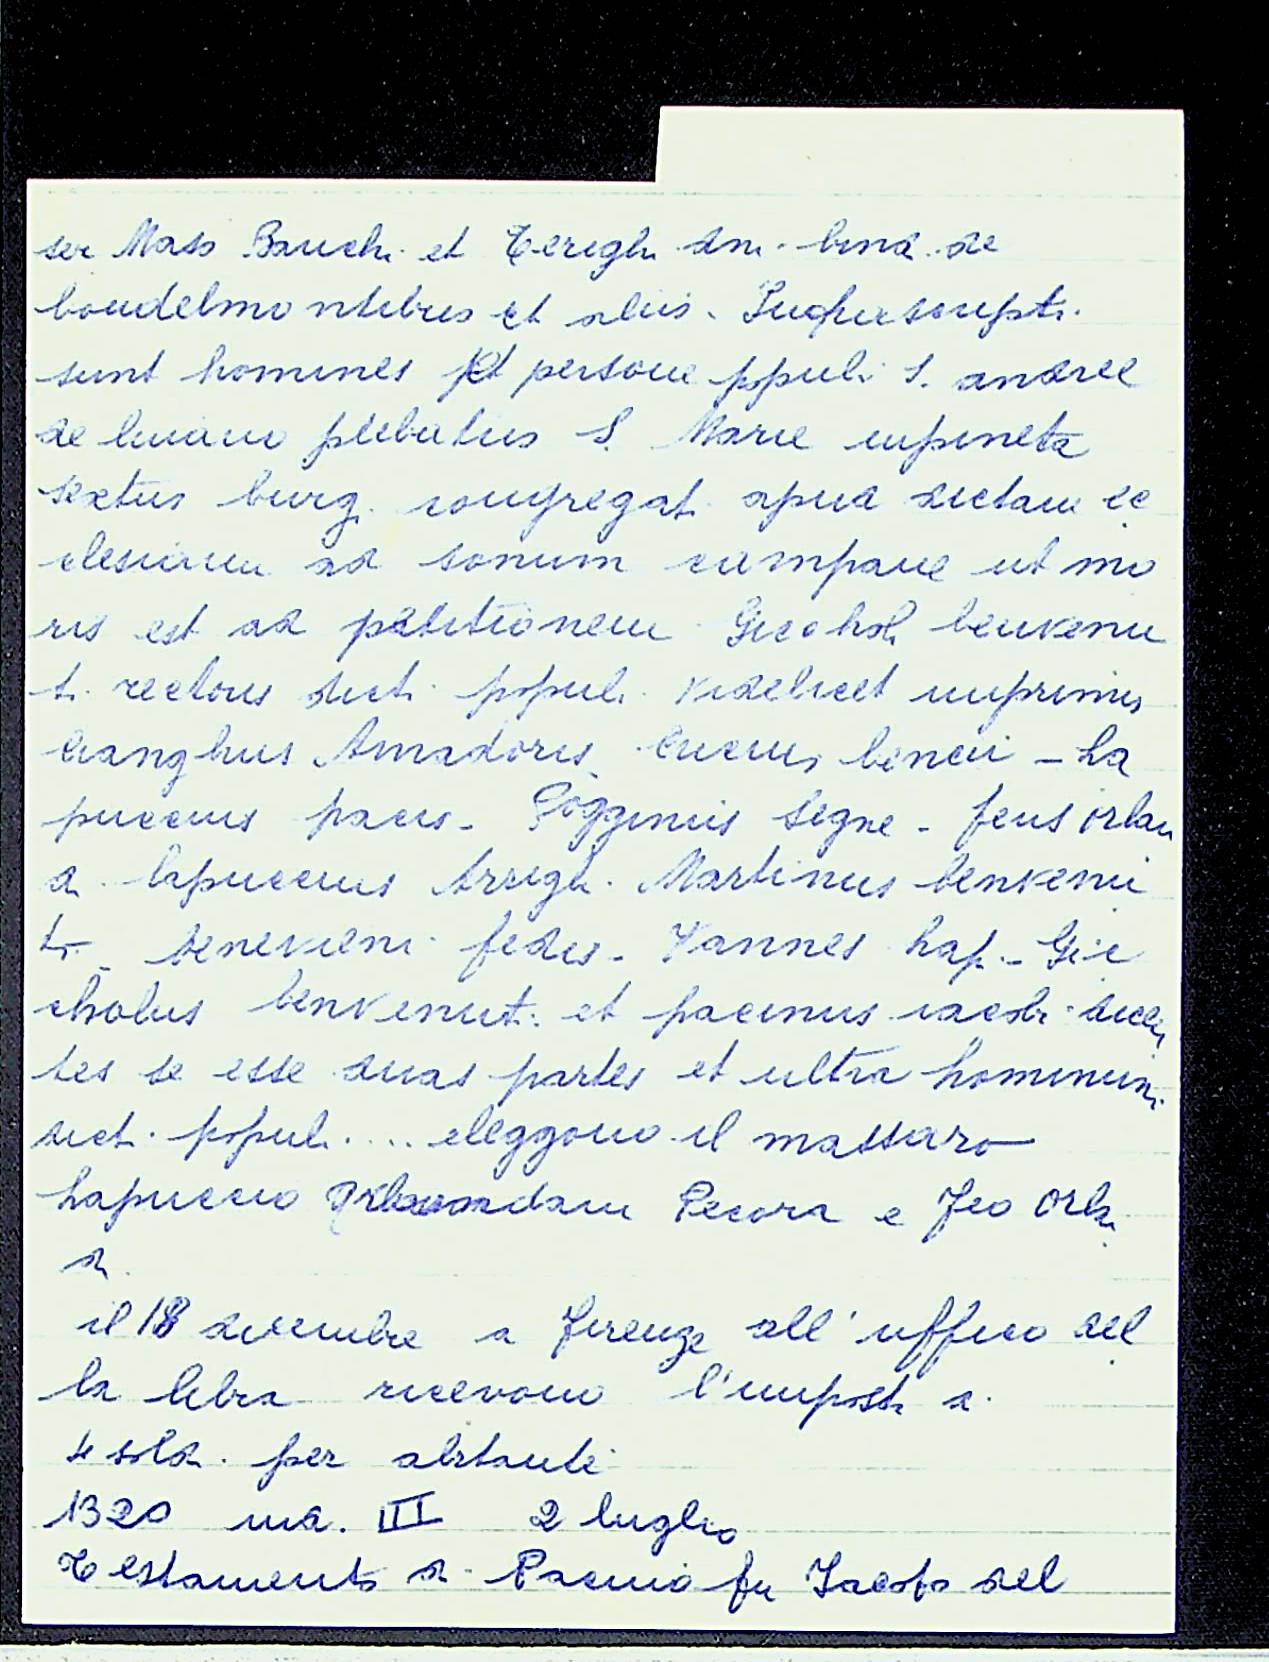 ser Maso Banchi et Tereghi dni. bind. de
bondelmontibus et aliis. Infrascripti
sunt homines et persone populi S. andree
de luiano plebatus S. Marie inpineta
sextus burg. congregati apud dictam ec
clesiam ad sonum campane ut mo
ris est ad petitionem Giccholi benvenu
ti rectoris dicti populi videlicet inprimis
Cianghus Amadoris. Cucius bencii - La
puccius pacis - Pogginus Segne - feus orlan
di Lapuccius Arrighi. Martinus benvenu
ti - benevieni fedis - Vannes Lap. - Gic
cholus benvenuti et pacinus iacobi dicen
tes se esse duas partes et ultra hominum
dicti populi .... eleggono il massaro
Lapuccio Pecora e Feo Orlan
di
il 18 dicembre a Firenze all'uffico del
la libra ricevono l'imposta di
4 soldi per abitante
1320 ind. III 2 luglio
Testamento di Pacino fu Iacopo del